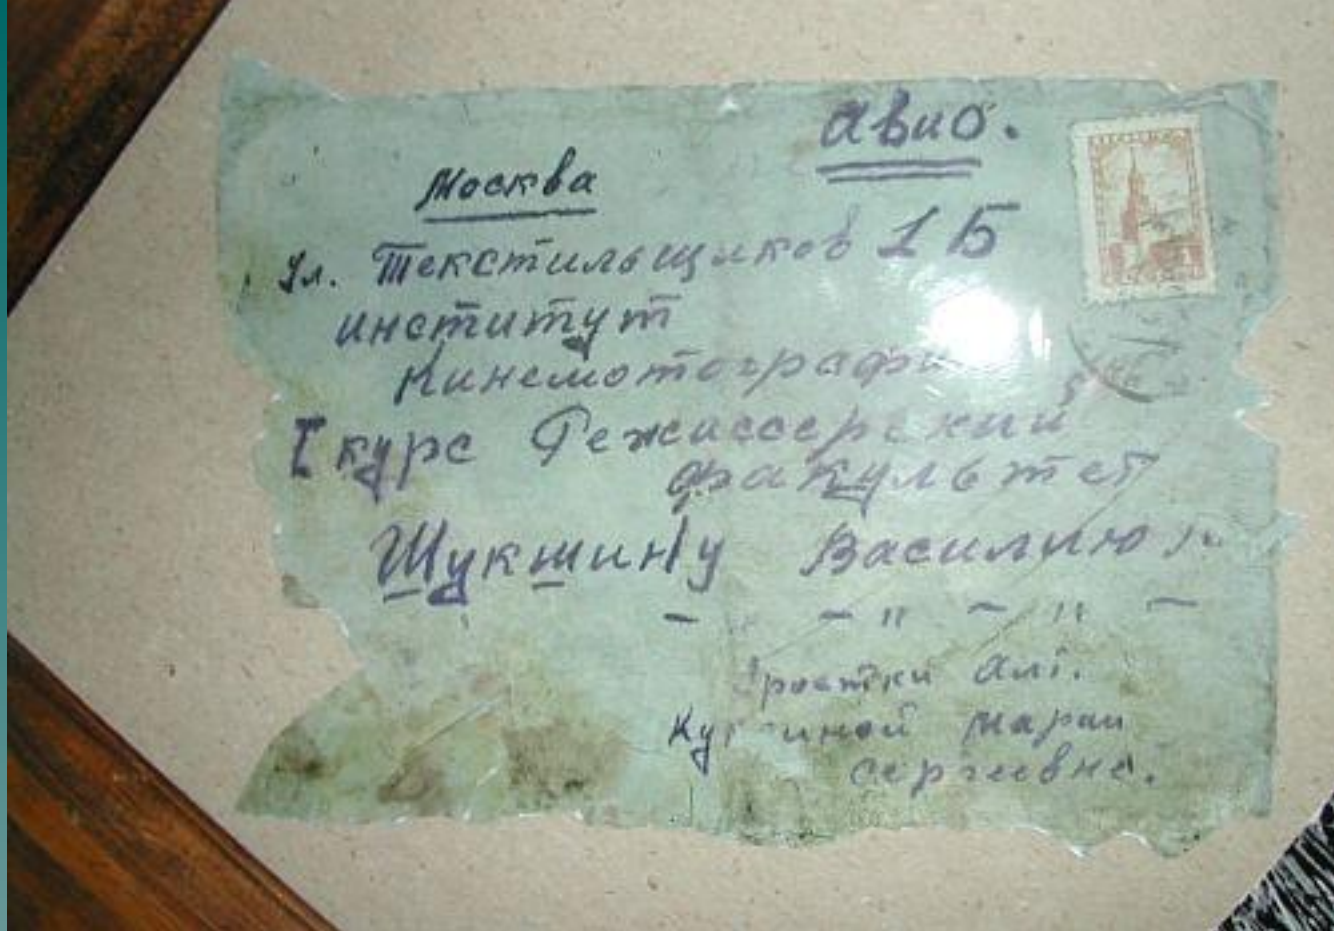 Авио.
Москва
Ул. Текстильщиков 1 Б
институт
Кинемотографи
I курс Режассерский
факультет
Шукшину Василию
— " — " — " —
Сростки Алт.
Куксиной Марии
сергеевне.